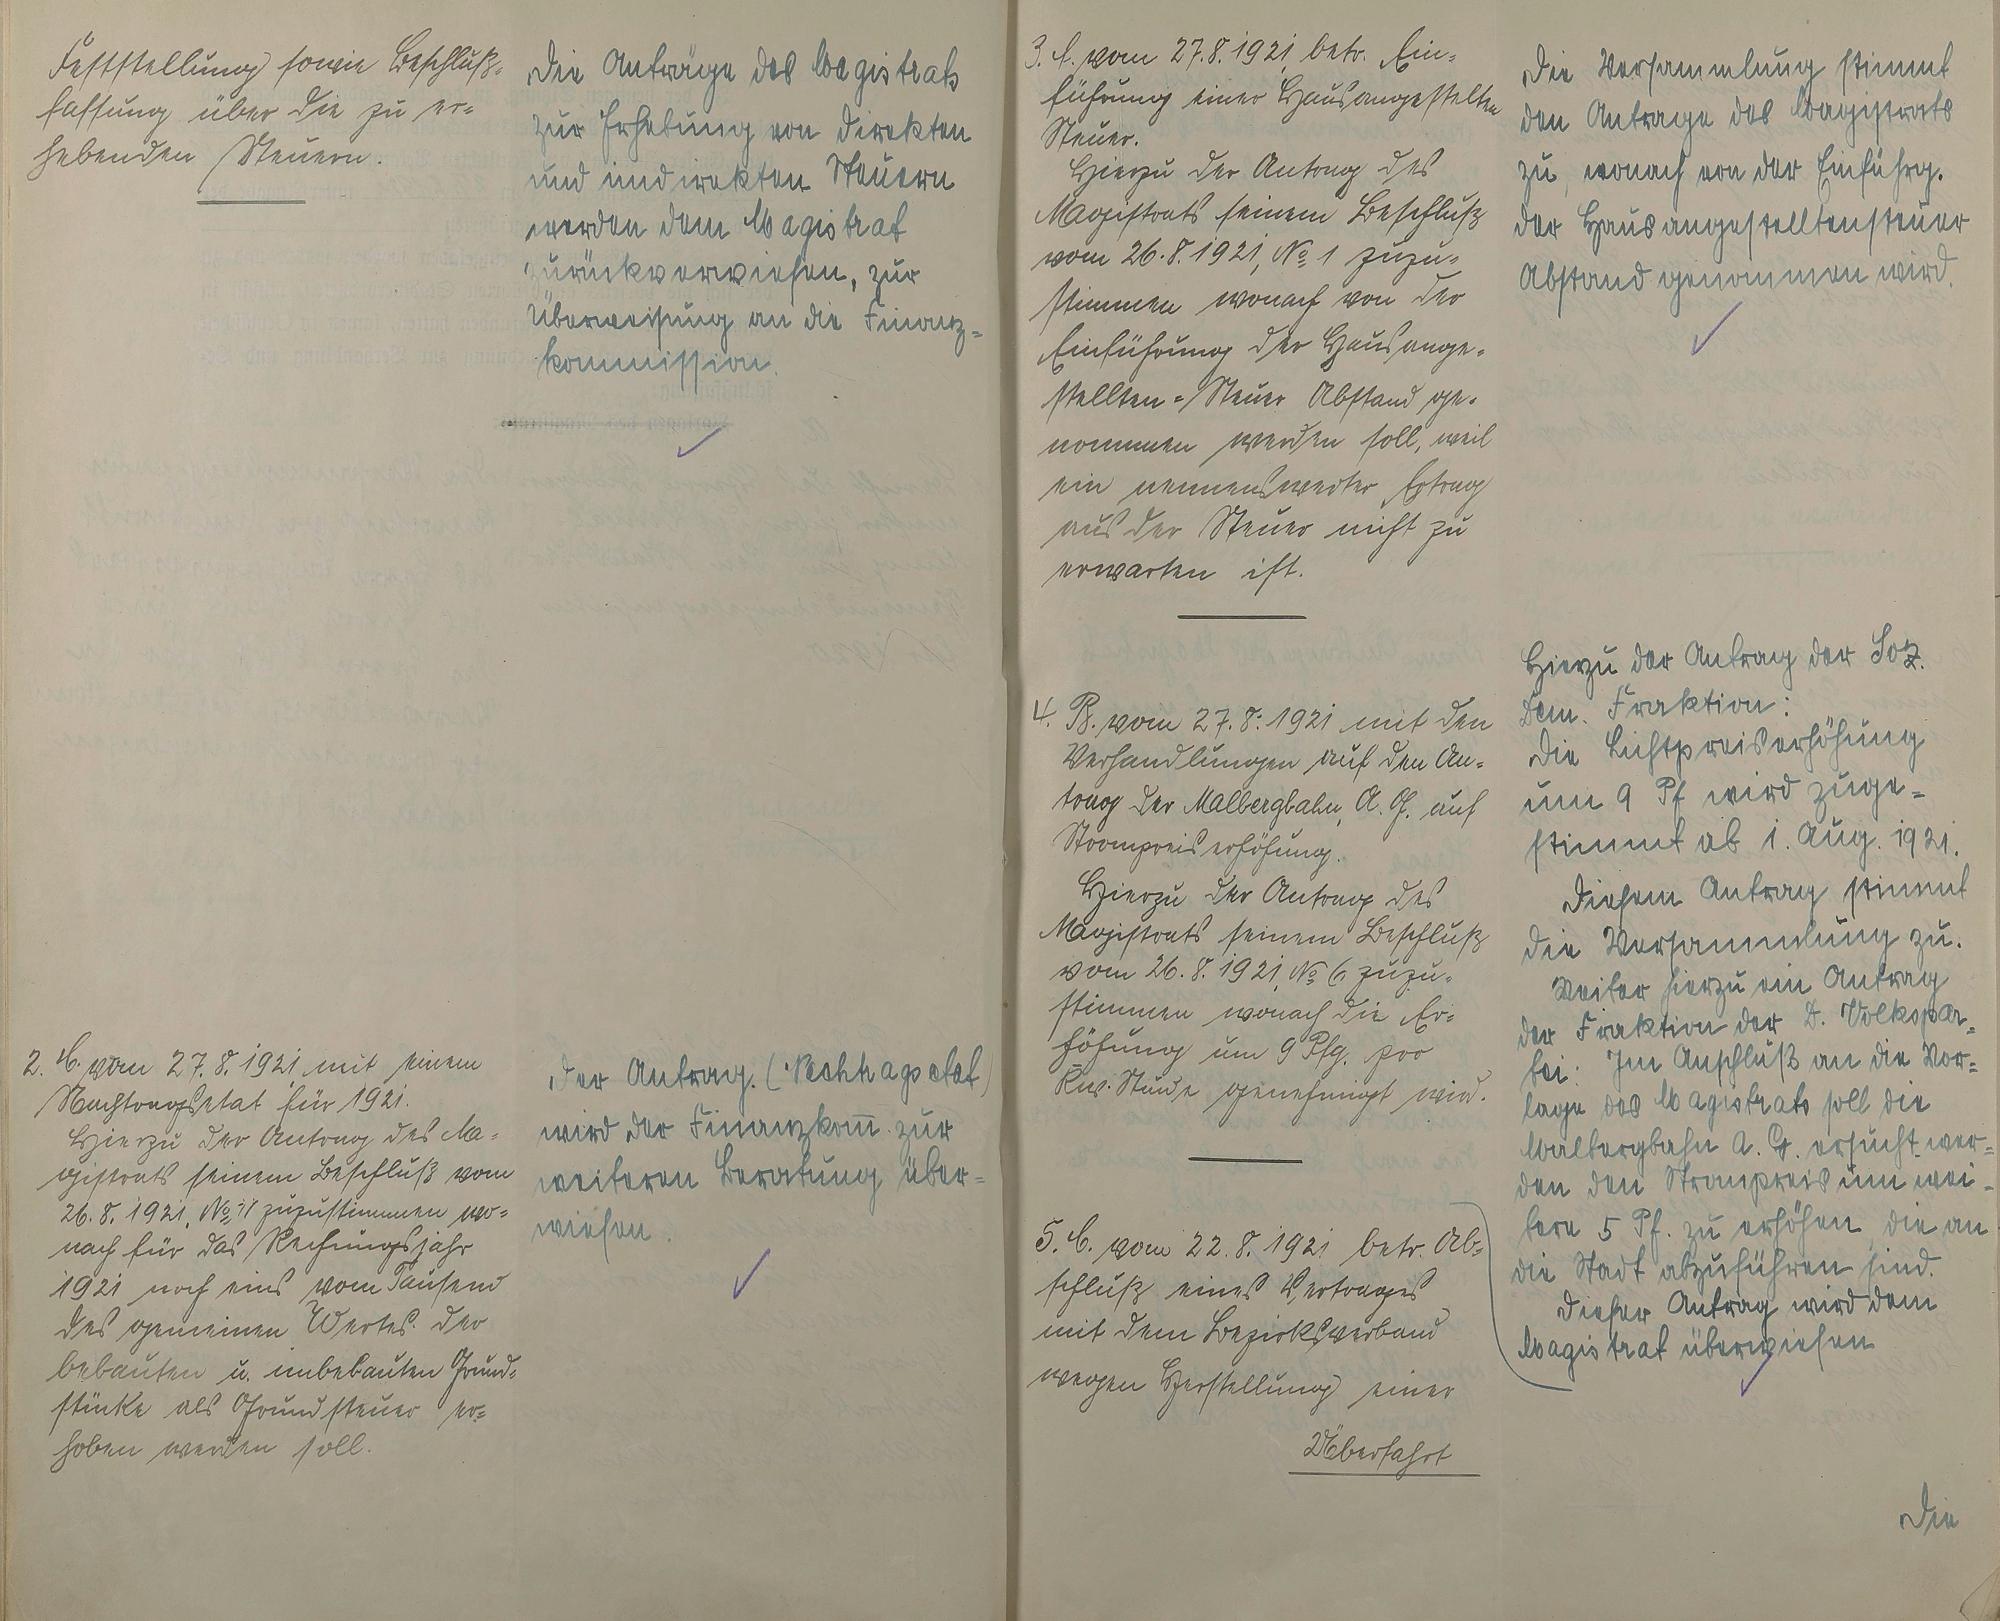 Feststellung sowie Beschluß-
fassung über die zu er-
hebenden Steuern.
Die Anträge des Magistrats
zur Erhebung von direkten
und indirekten Steuern
werden dem Magistrat
zurückverwiesen, zur
Überweisung an die Finanz-
kommission.
2. C. vom 27.8.1921 mit einem
Nachtragsetat für 1921.
Hierzu der Antrag des Ma-
gistrats seinem Beschluß vom
26.8.1921, No 11 zuzustimmen wo-
nach für das Rechnungsjahr
1921 noch eins vom Tausend
des gemeinen Wertes der
bebauten u. unbebauten Grund-
stücke als Grundsteuer er-
hoben werden soll.
Der Antrag. (Nachtragsetat)
wird der Finanzkom̅. zur
weiteren Beratung über-
wiesen.
3. A. vom 27.8.1921, betr. Ein-
führung einer Hausangestellten
Steuer.
Hierzu der Antrag des
Magistrats seinem Beschluß
vom 26.8.1921, No 1 zuzu-
stimmen wonach von der
Einführung der Hausange-
stellten-Steuer Abstand ge-
nommen werden soll, weil
ein nennenswerter Ertrag
aus der Steuer nicht zu
erwarten ist.
Die Versammlung stimmt
den Antrage des Magistrats
zu, wonach von der Einführg.
der Hausangestelltensteuer
Abstand genommen wird.
4. B. vom 27.8.1921 mit den
Verhandlungen auf den An-
trag der Malbergbahn, A. G. auf
Strompreiserhöhung.
Hierzu der Antrag des
Magistrats seinem Beschluß
vom 26.8.1921, No 6 zuzu-
stimmen wonach die Er-
höhung um 9 Pfg. pro
Kw. Stunde genehmigt wird.
Hierzu der Antrag der Soz.
Dem. Fraktion:
Die Lichtpreiserhöhung
um 9 Pf wird zuge-
stimmt ab 1. Aug. 1921.
Diesem Antrag stimmt
die Versammlung zu.
Weiter hierzu ein Antrag
der Fraktion der D. Volkspar-
tei: Im Anschluß an die Vor-
lage des Magistrats soll die
Malbergbahn A. G. ersucht wer-
den den Strompreis um wei-
tere 5 Pf. zu erhöhen, die an
die Stadt abzuführen sind.
Dieser Antrag wird dem
Magistrat überwiesen
5. C. vom 22.8.1921 betr. Ab-
schluß eines Vertrages
mit dem Bezirksverband
wegen Herstellung einer
Überfahrt
Die